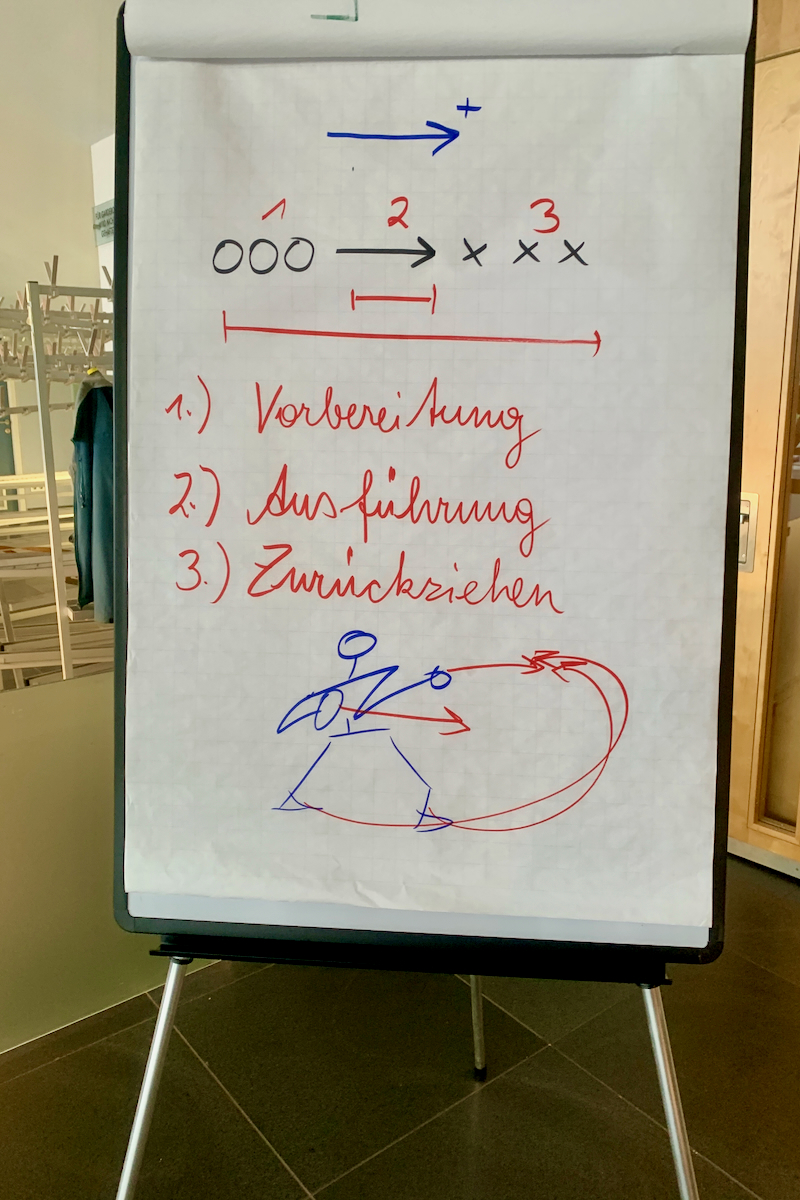 +
1 2 3
OOO → x x x
1.) Vorbereitung
2.) Ausführung
3.) Zurückziehen